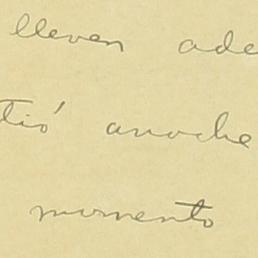 lleven ade
tió anoche
momento